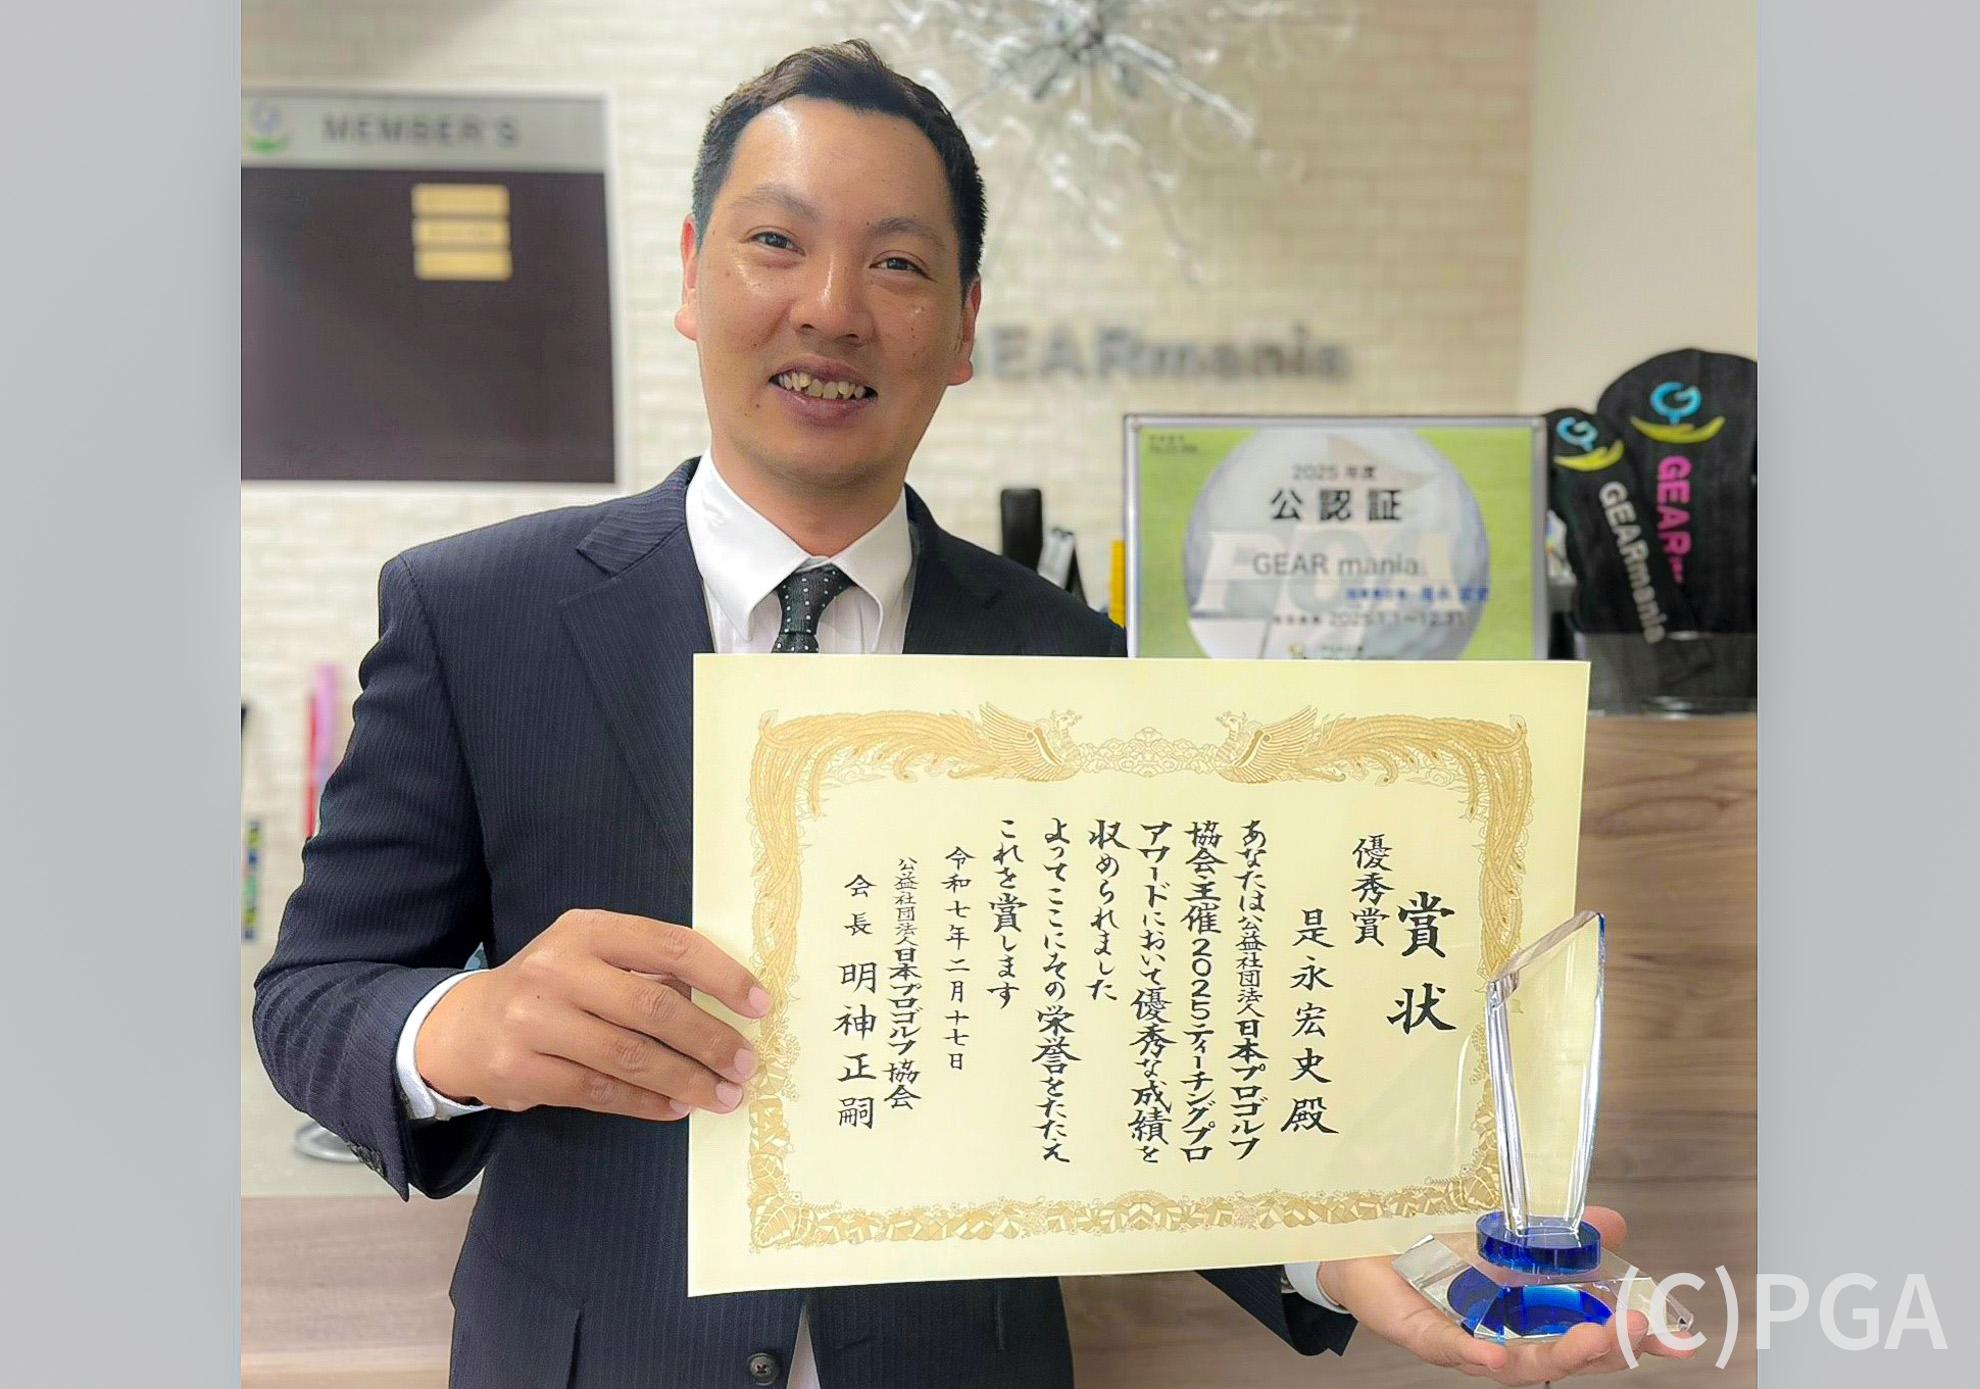 MEMBER'S
GEARmania
2025 年度
公認証
GEAR mania
2025.1.1〜12.31
GEARmania
GEAR
賞状
優秀賞
是永宏史殿
あなたは公益社団法人日本プロゴルフ
協会主催2025ティーチングプロ
アワードにおいて優秀な成績を
収められました
よってここにその栄誉をたたえ
これを賞します
令和七年二月十七日
公益社団法人日本プロゴルフ協会
会長 明神正嗣
(C)PGA